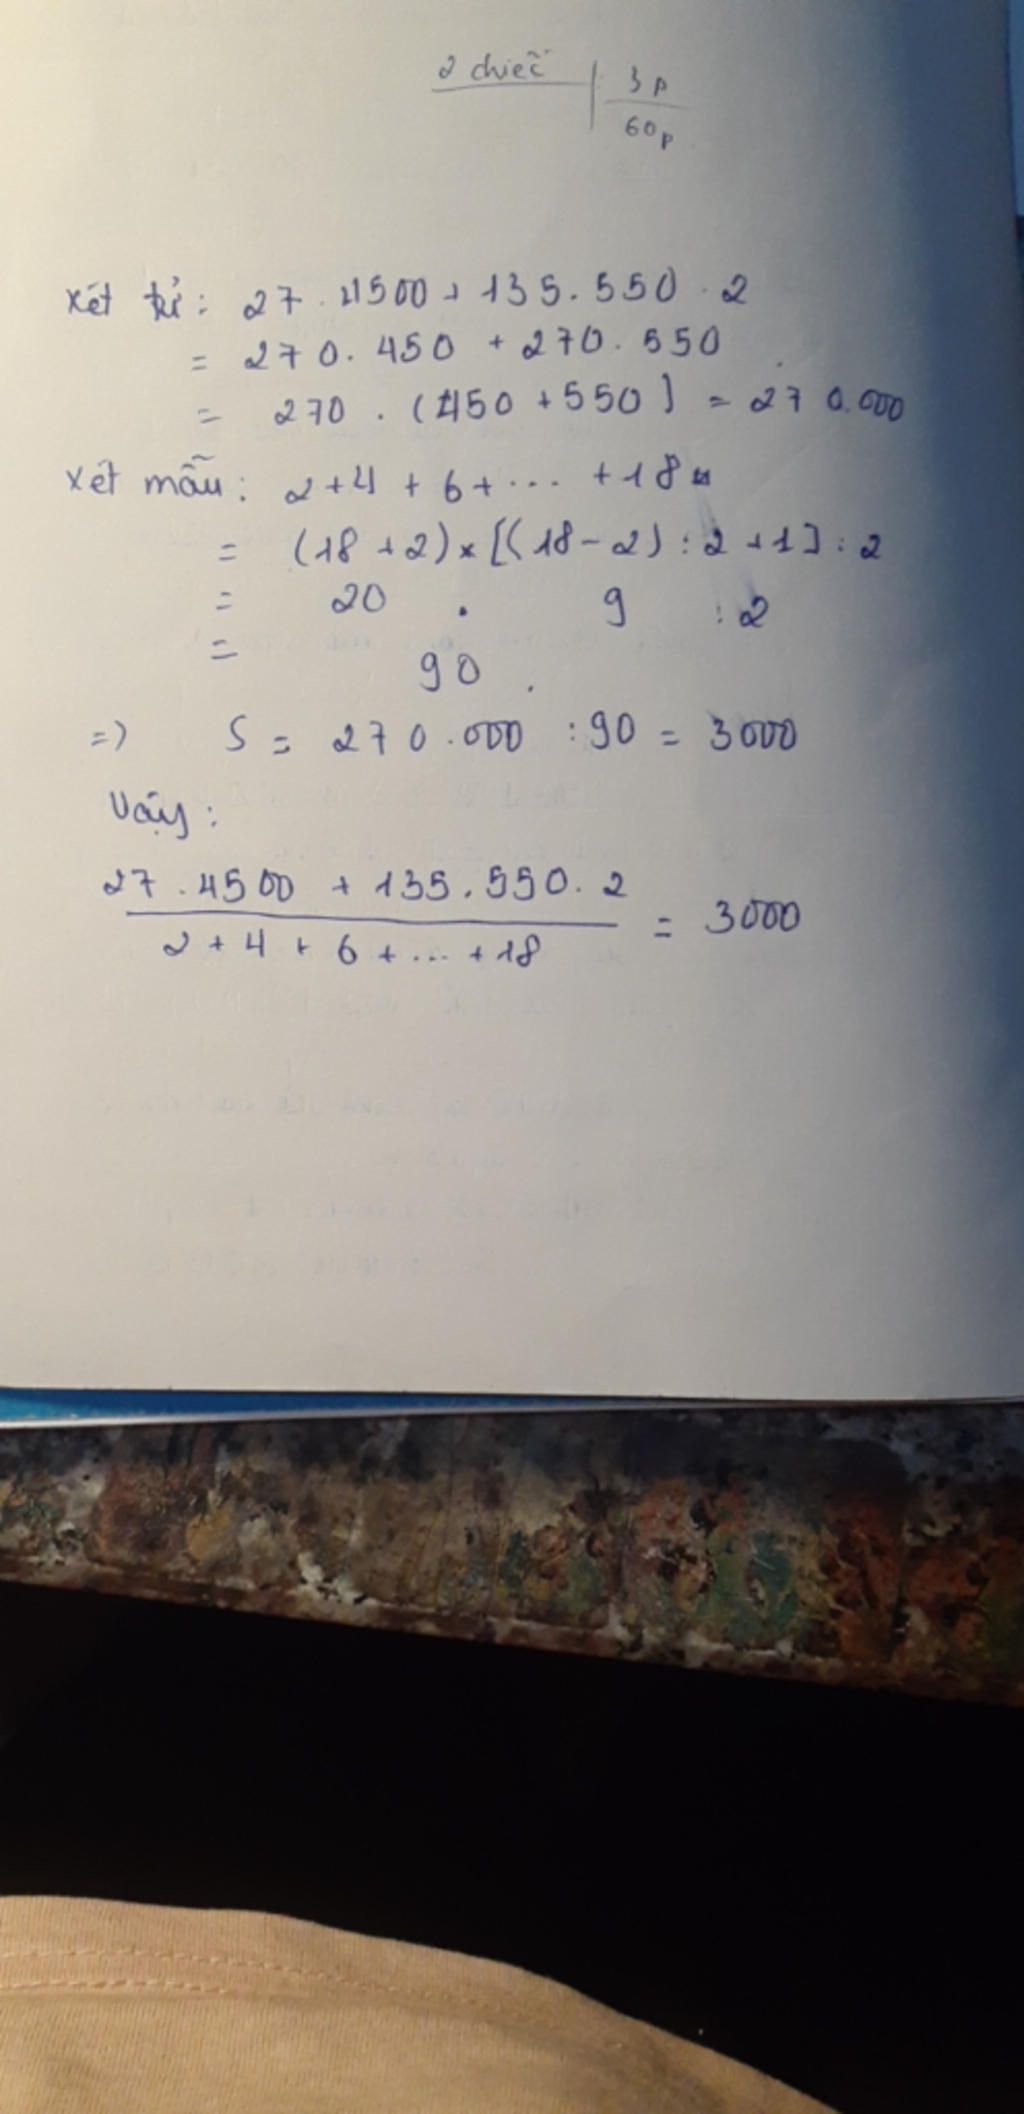 2 chiếc 3p
60p
Xét tử: 27.4500 + 135.550.2
= 270.450 + 270.550
= 270.(450 + 550) = 270.000
Xét mẫu: 2+4+6+...+18
= (18+2)×[(18-2):2+1]:2
= 20 . 9 :2
= 90.
=> S = 270.000 :90 = 3000
Vậy:
27.4500 + 135.550.2
2+4+6+...+18 = 3000